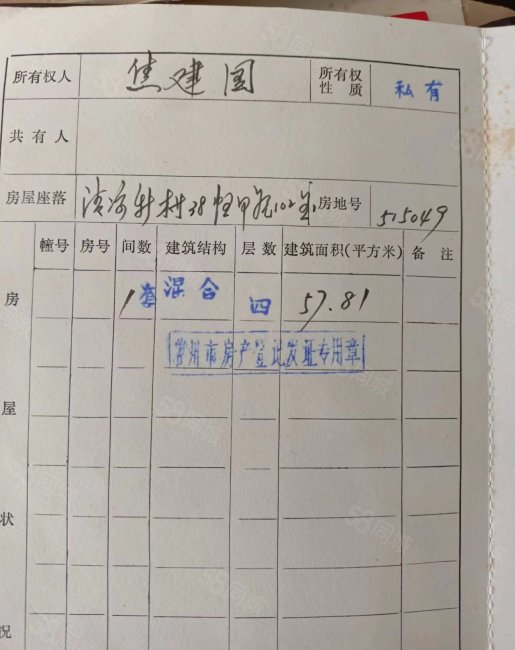 所有权人 焦建国 所有权性质 私有
共有人
房屋座落 清凉新村38幢甲单元102室 房地号 515049
幢号 房号 间数 建筑结构 层数 建筑面积(平方米) 备注
房屋状况
1套 混合 四 57.81
常州市房产登记发证专用章
58同城